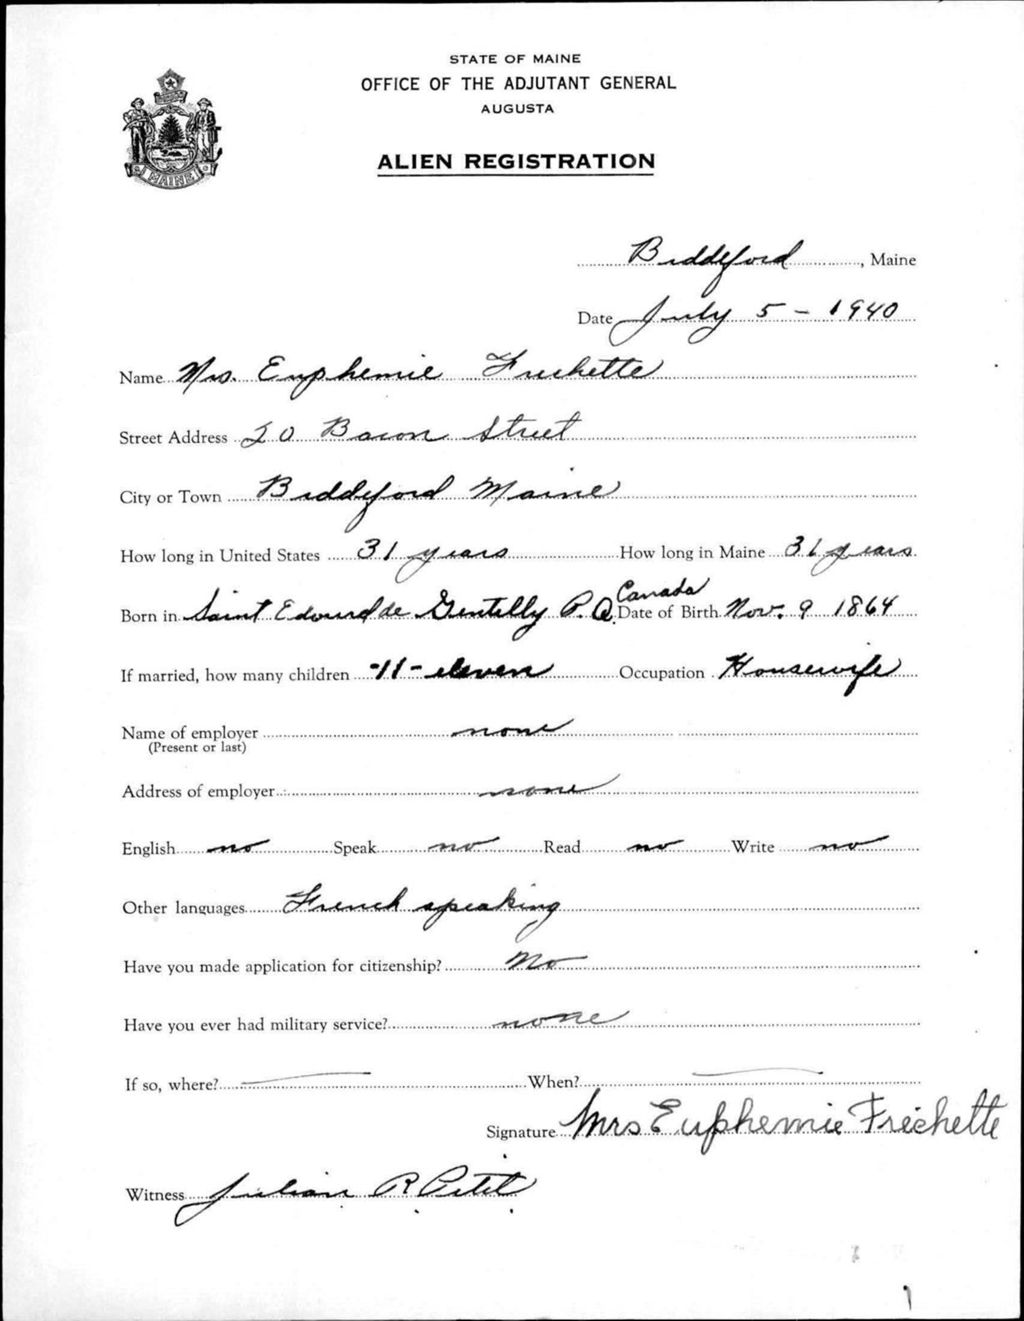 STATE OF MAINE
OFFICE OF THE ADJUTANT GENERAL
AUGUSTA
ALIEN REGISTRATION
MAINE
Biddeford, Maine
Date July 5 - 1940
Name Mrs. Euphemie Frechette
Street Address 20 Bacon Street
City or Town Biddeford Maine
How long in United States 31 years How long in Maine 31 years
Born in Saint Edouard de Gentilly P. Q. Canada Date of Birth Nov. 9 1864
If married, how many children -11- eleven Occupation Housewife
Name of employer none
(Present or last)
Address of employer none
English no Speak no Read no Write no
Other languages French speaking
Have you made application for citizenship? No
Have you ever had military service? none
If so, where? When?
Signature Mrs Euphemie Fréchette
Witness Julian R.